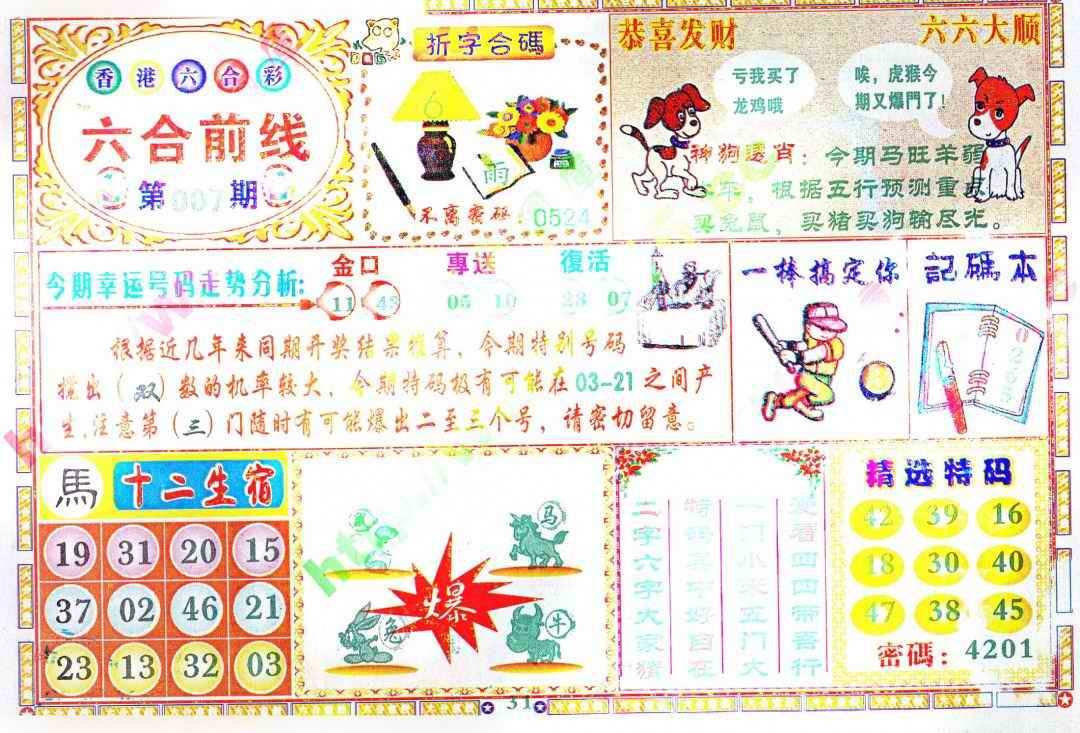 香港六合彩
六合前线
第007期
折字合碼
6
雨
不离密码：0524
恭喜发财
六六大顺
亏我买了
龙鸡哦
唉，虎猴今
期又爆門了！
今期马旺羊弱
根据五行预测重点
买兔鼠，买猪买狗输尽光。
今期幸运号码走势分析：
金口
11 43
專送
05 10
復活
23 07
根据近几年来同期开奖结果推算，今期特别号码
搅出（双）数的机率较大，今期特码极有可能在03-21之间产
生，注意第（三）门随时有可能爆出二至三个号，请密切留意。
一棒搞定你
記碼本
0265
馬
十二生宿
19 31 20 15
37 02 46 21
23 13 32 03
鼠
马
爆
兔
牛
一门小来五门大
二字六字大家猜
精选特码
42 39 16
18 30 40
47 38 45
密碼：4201
31